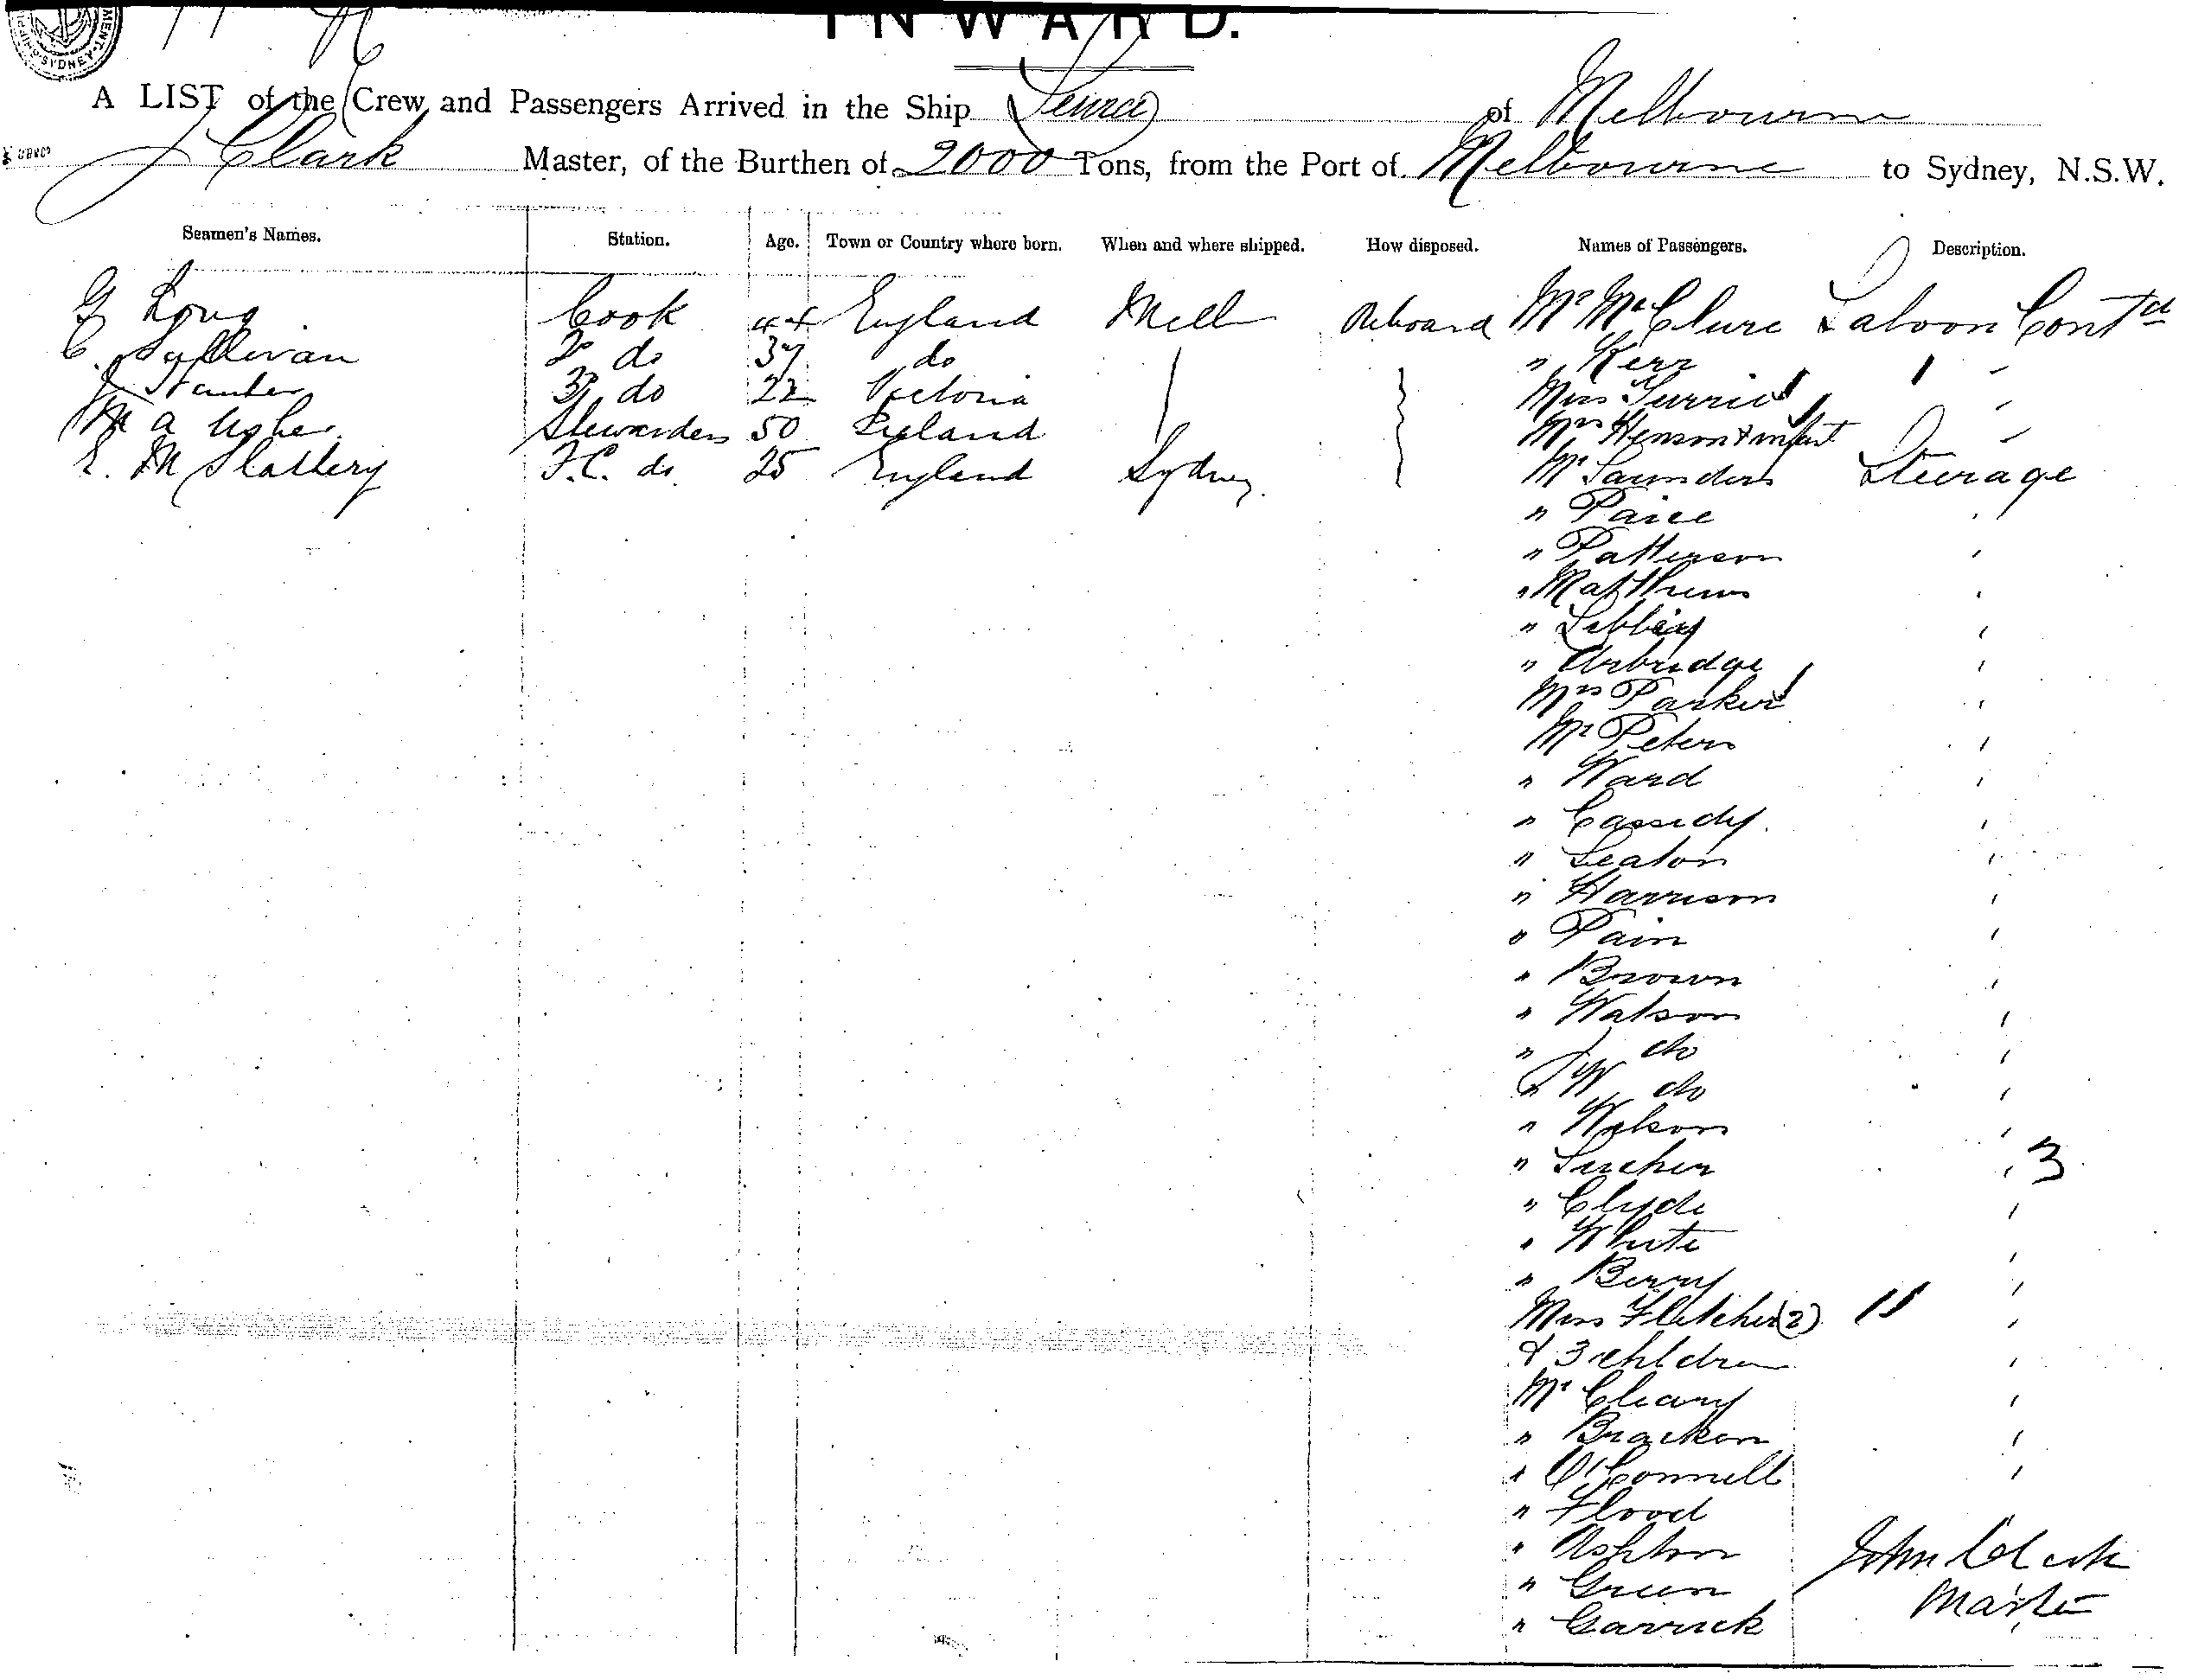 INWARD.
A LIST of the Crew and Passengers Arrived in the Ship of Melbourne
J Clark Master, of the Burthen of 2000 Tons, from the Port of Melbourne to Sydney, N.S.W.
Seamen's Names. Station. Age. Town or Country where born. When and where shipped. How disposed. Names of Passengers. Description.
G Long Cook 44 England Melb Onboard Mr McClure Saloon Contd
C. Sullivan 2d do 37 do " Kerr "
J 3d do 22 Victoria Miss Currie "
M A Usher Stewardess 50 Ireland Mrs Henson & infant "
E. M Slattery F.C. do 25 England Sydney Mr Saunders Steerage
" Paice
" Patterson
" Matthews
" Sibbley
" Arbridge
Mrs Parker
Mr Peters
" Ward
" Cassidy
" Seaton
" Harrison
" Pain
" Brown
" Watson
" J do
" W do
" Wilson
" 3
" Clyde
" White
" Berry
Miss Fletcher (2)
& 3 children
Mr Cleary
" Bracken
" O'Connell
" Flood
" Ashton John Clark
" Green Master
" Garrick